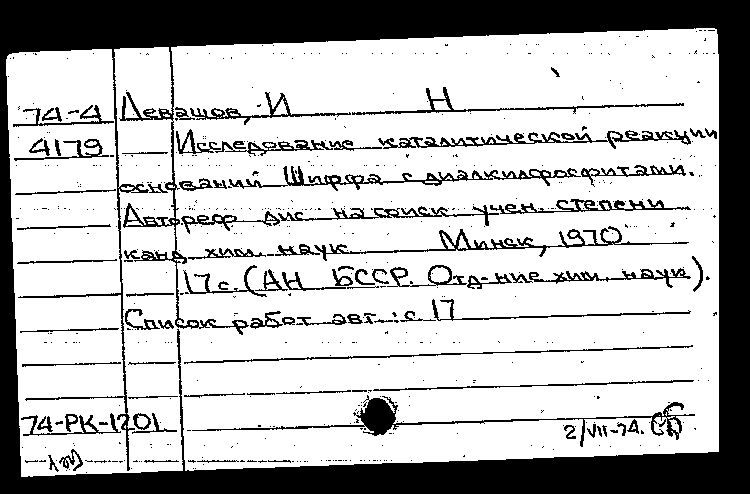 74-4 Левашов, И Н
4179 Исследование каталитической реакции
оснований Шиффа с диалкилфосфитами.
Автореф дис на соиск учен. степени
канд. хим. наук Минск, 1970.
17с. (АН БССР. Отд-ние хим. наук).
Список работ авт.: с 17
74-РК-1201
2/VII-74.